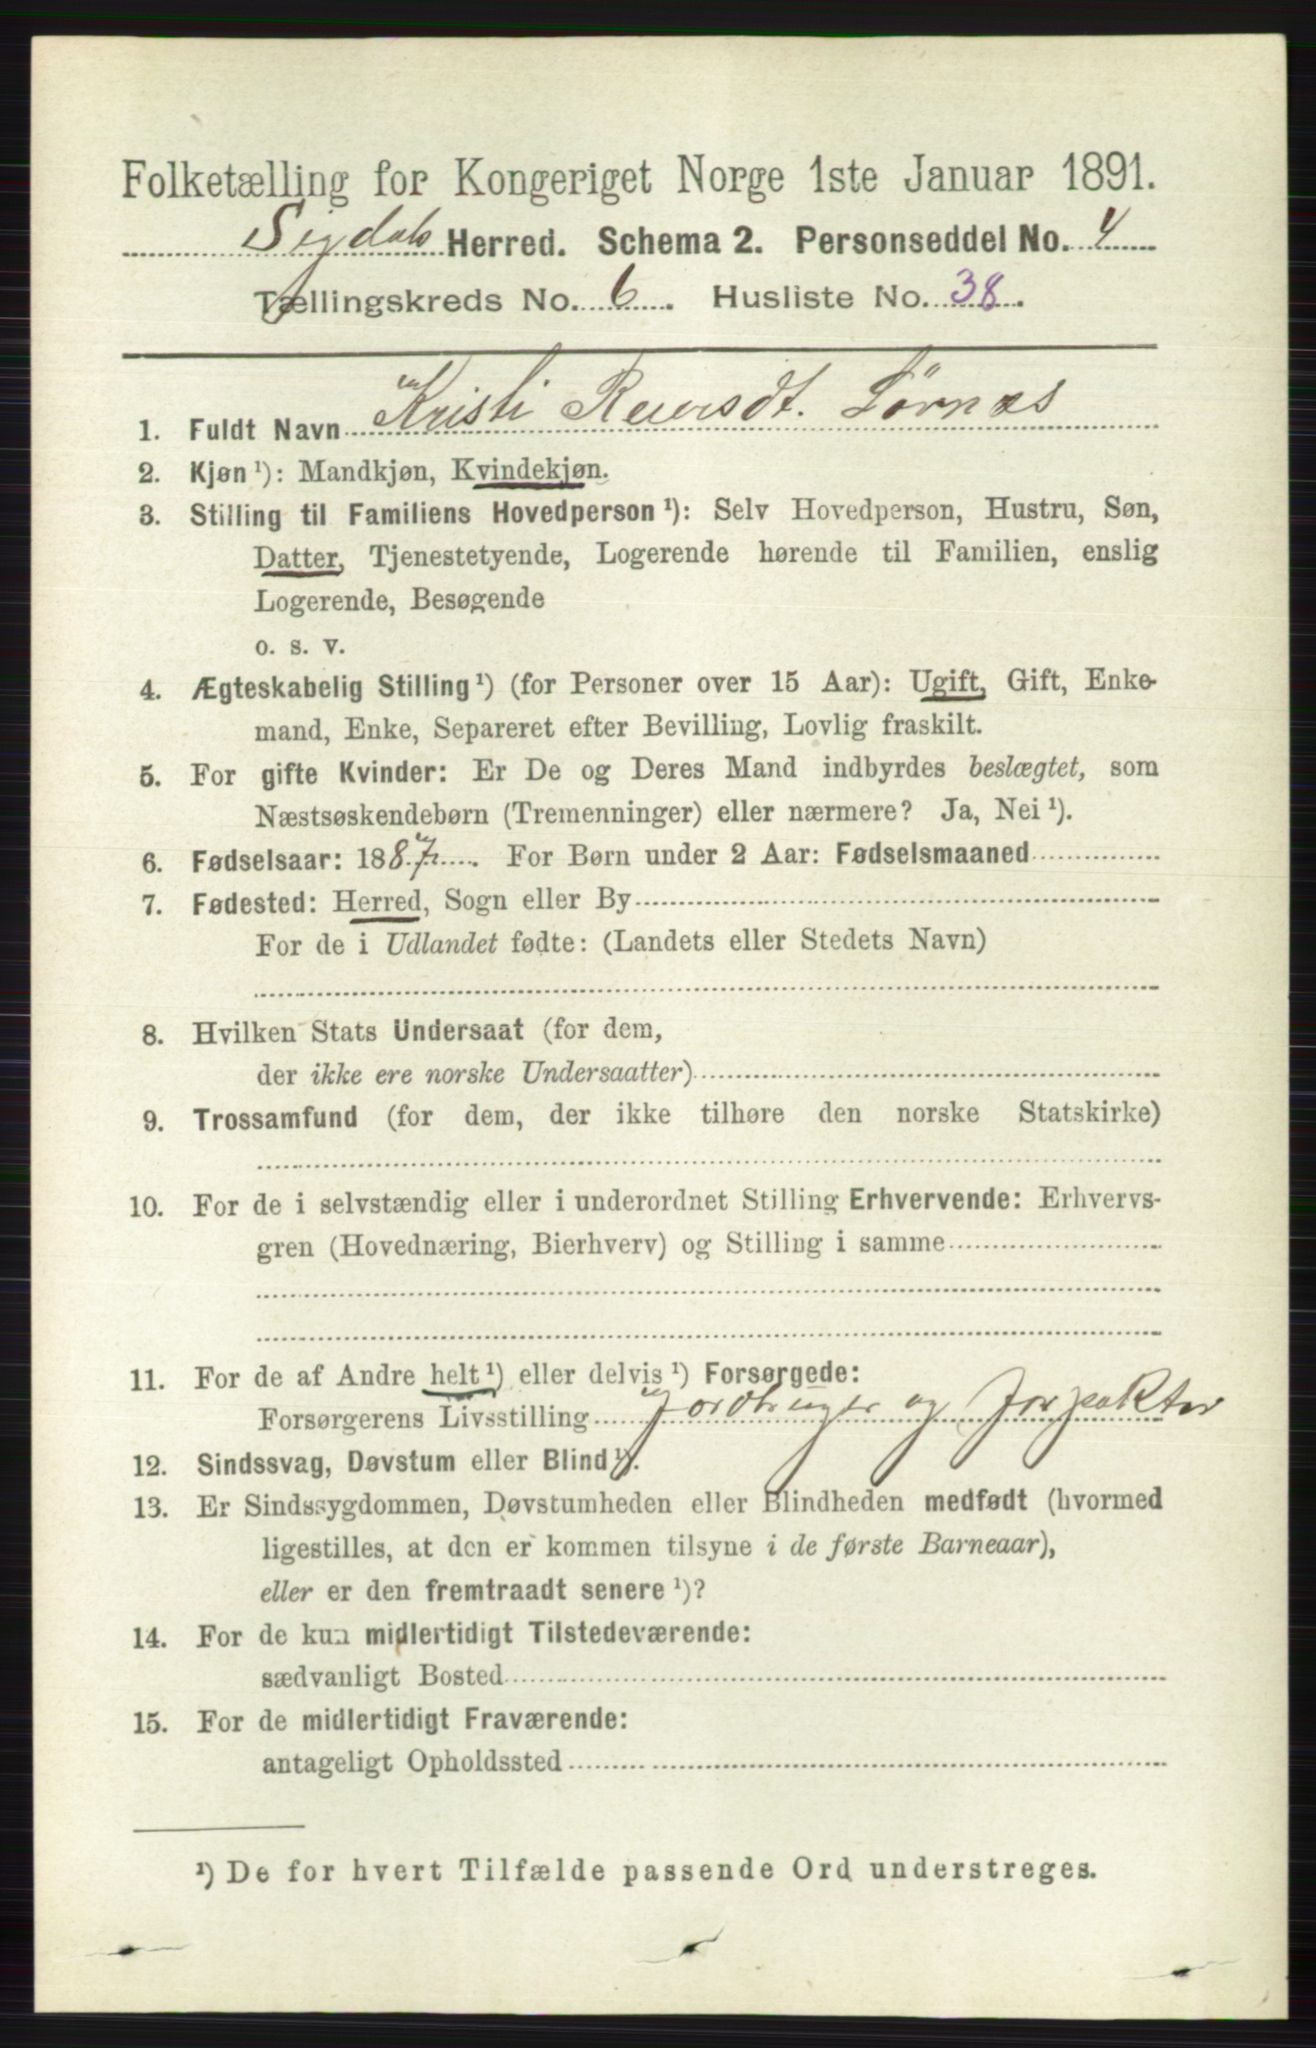 Folketælling for Kongeriget Norge 1ste Januar 1891.
Sigdals Herred. Schema 2. Personseddel No. 4
Tællingskreds No. 6. Husliste No. 38.
1. Fuldt Navn Kristi Reiersdt. Lørnæs
2. Kjøn ¹): Mandkjøn, Kvindekjøn.
3. Stilling til Familiens Hovedperson ¹): Selv Hovedperson, Hustru, Søn,
Datter, Tjenestetyende, Logerende hørende til Familien, enslig
Logerende, Besøgende
o. s. v.
4. Ægteskabelig Stilling ¹) (for Personer over 15 Aar): Ugift, Gift, Enke-
mand, Enke, Separeret efter Bevilling, Lovlig fraskilt.
5. For gifte Kvinder: Er De og Deres Mand indbyrdes beslægtet, som
Næstsøskendebørn (Tremenninger) eller nærmere? Ja, Nei ¹).
6. Fødselsaar: 1887. For Børn under 2 Aar: Fødselsmaaned
7. Fødested: Herred, Sogn eller By
For de i Udlandet fødte: (Landets eller Stedets Navn)
8. Hvilken Stats Undersaat (for dem,
der ikke ere norske Undersaatter)
9. Trossamfund (for dem, der ikke tilhøre den norske Statskirke)
10. For de i selvstændig eller i underordnet Stilling Erhvervende: Erhvervs-
gren (Hovednæring, Bierhverv) og Stilling i samme
11. For de af Andre helt ¹) eller delvis ¹) Forsørgede:
Forsørgerens Livsstilling Jordbruger og Forpakter
12. Sindssvag, Døvstum eller Blind ¹).
13. Er Sindssygdommen, Døvstumheden eller Blindheden medfødt (hvormed
ligestilles, at den er kommen tilsyne i de første Barneaar),
eller er den fremtraadt senere ¹)?
14. For de kun midlertidigt Tilstedeværende:
sædvanligt Bosted
15. For de midlertidigt Fraværende:
antageligt Opholdssted
¹) De for hvert Tilfælde passende Ord understreges.